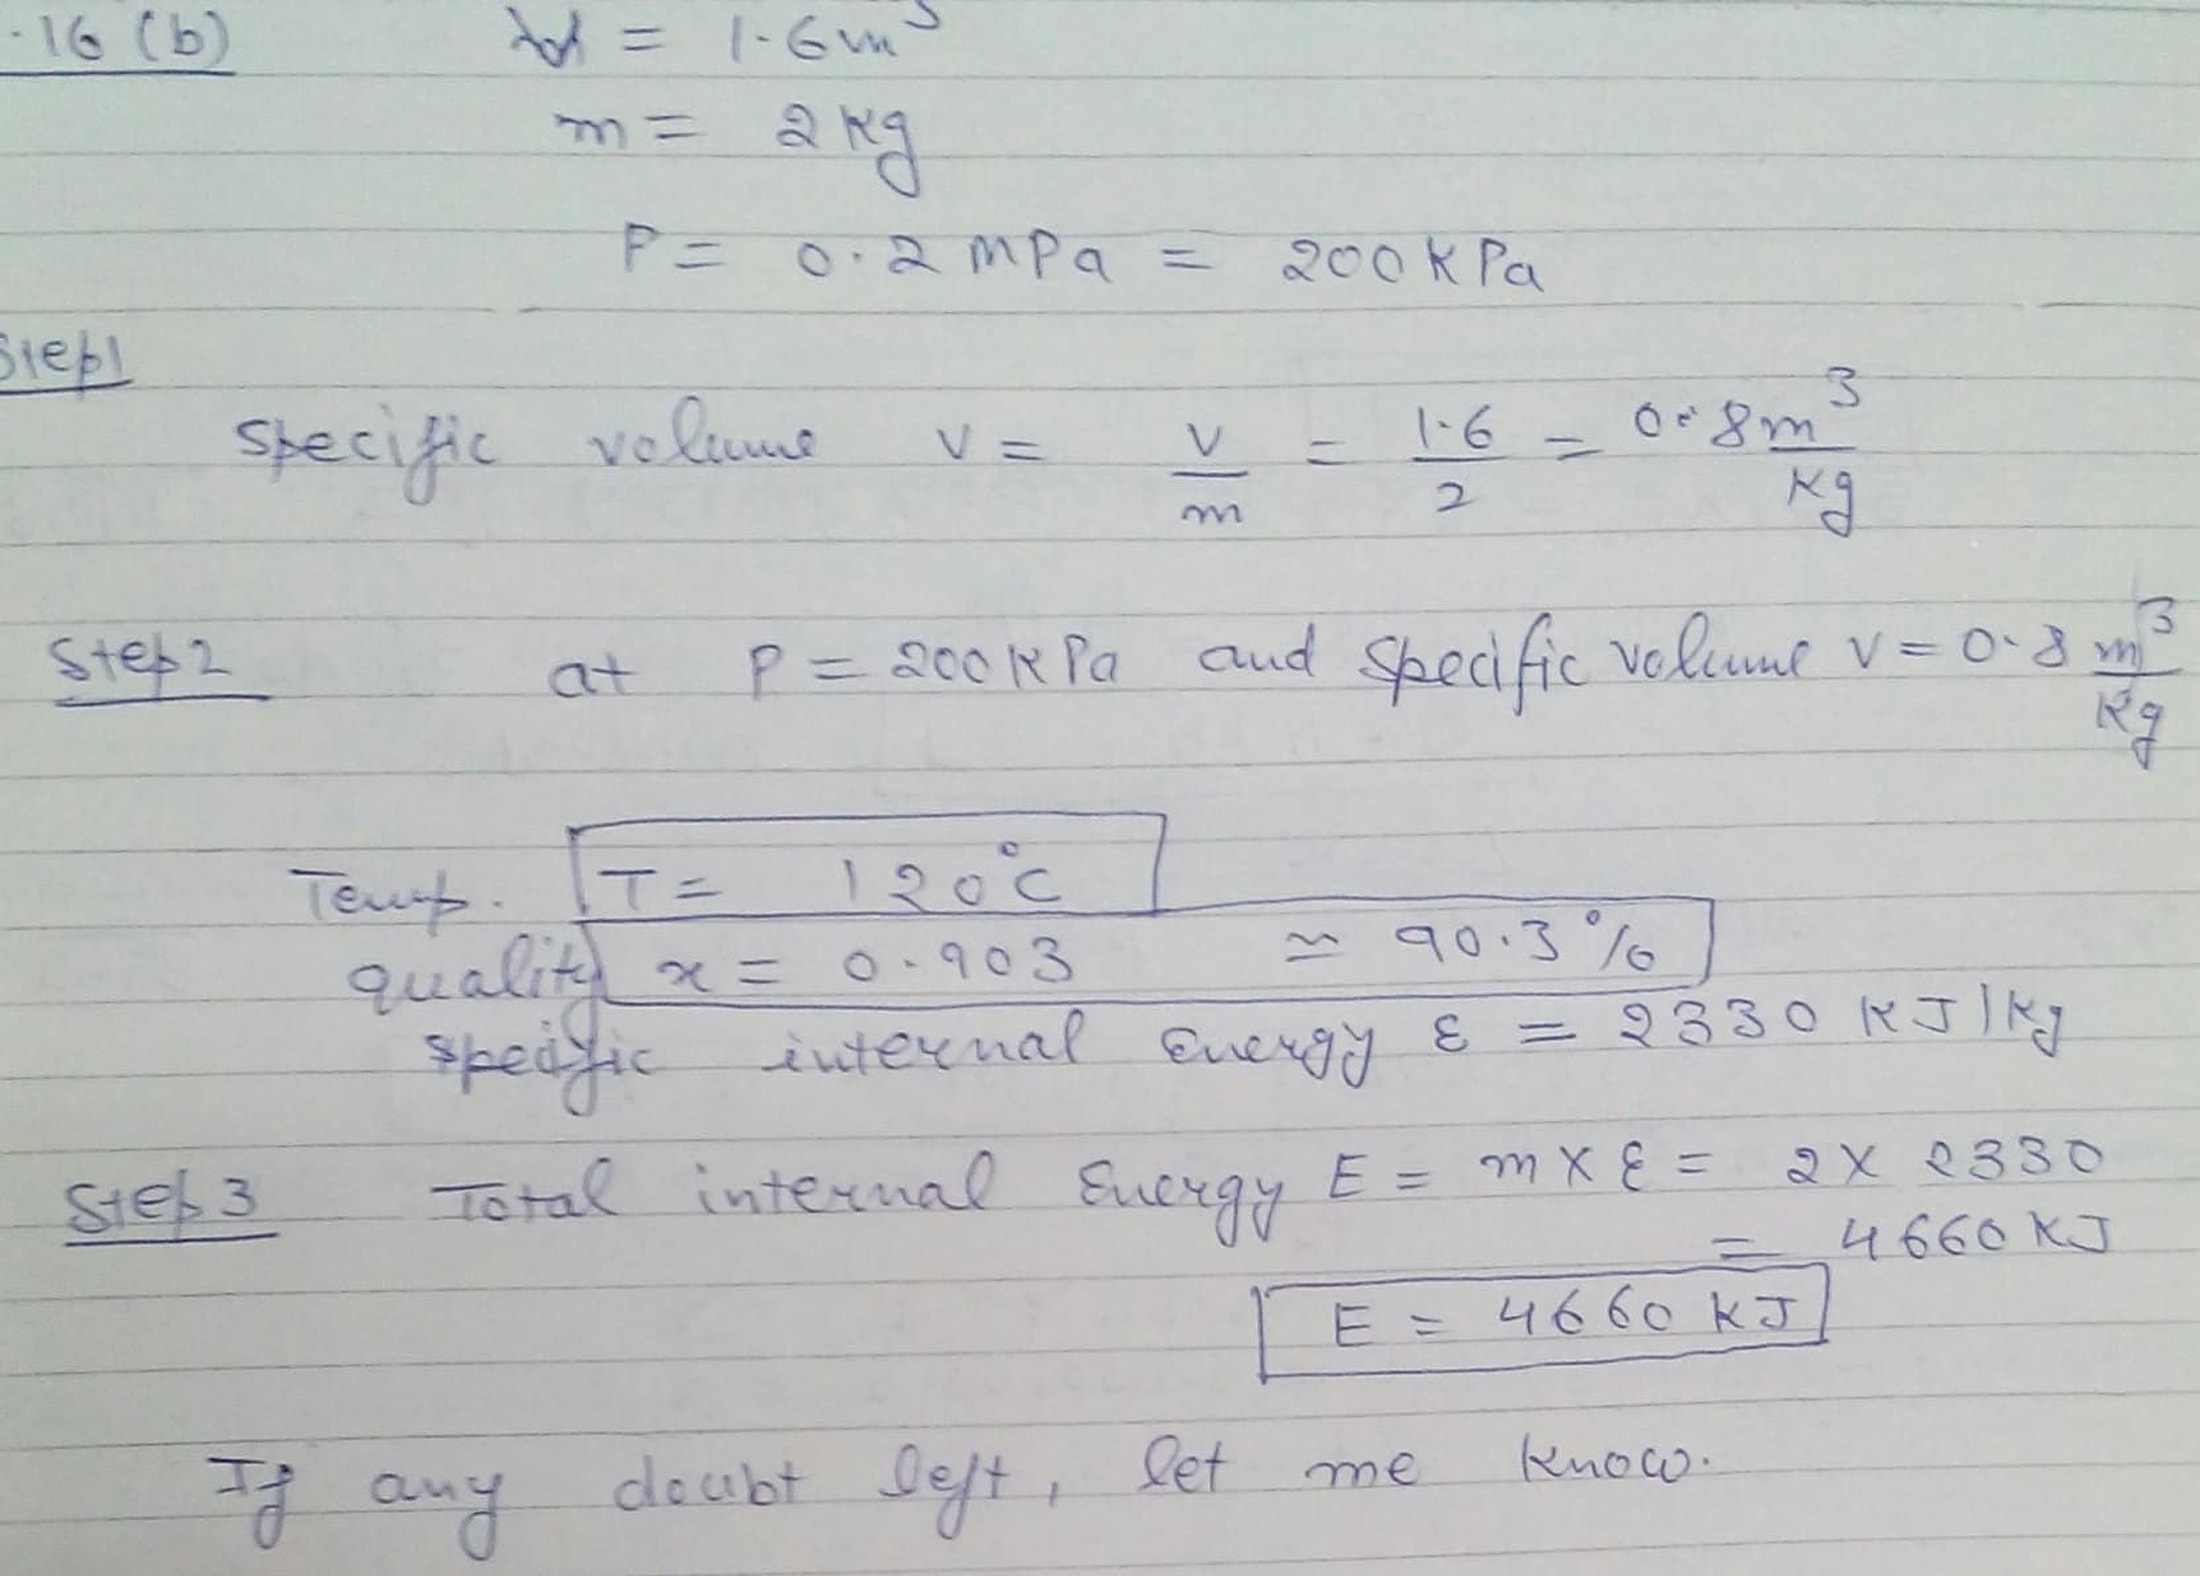 .16 (b) Vol = 1.6 m³
m = 2 kg
P = 0.2 MPa = 200 KPa
Step1
Specific volume v = V/m = 1.6/2 = 0.8 m³/kg
Step 2 at P = 200 KPa and Specific volume v = 0.8 m³/kg
Temp. T = 120°C
quality x = 0.903 ≈ 90.3 %
specific internal Energy ε = 2330 KJ/kg
Step 3 Total internal Energy E = m × ε = 2 × 2330
= 4660 KJ
E = 4660 KJ
If any doubt left, let me know.